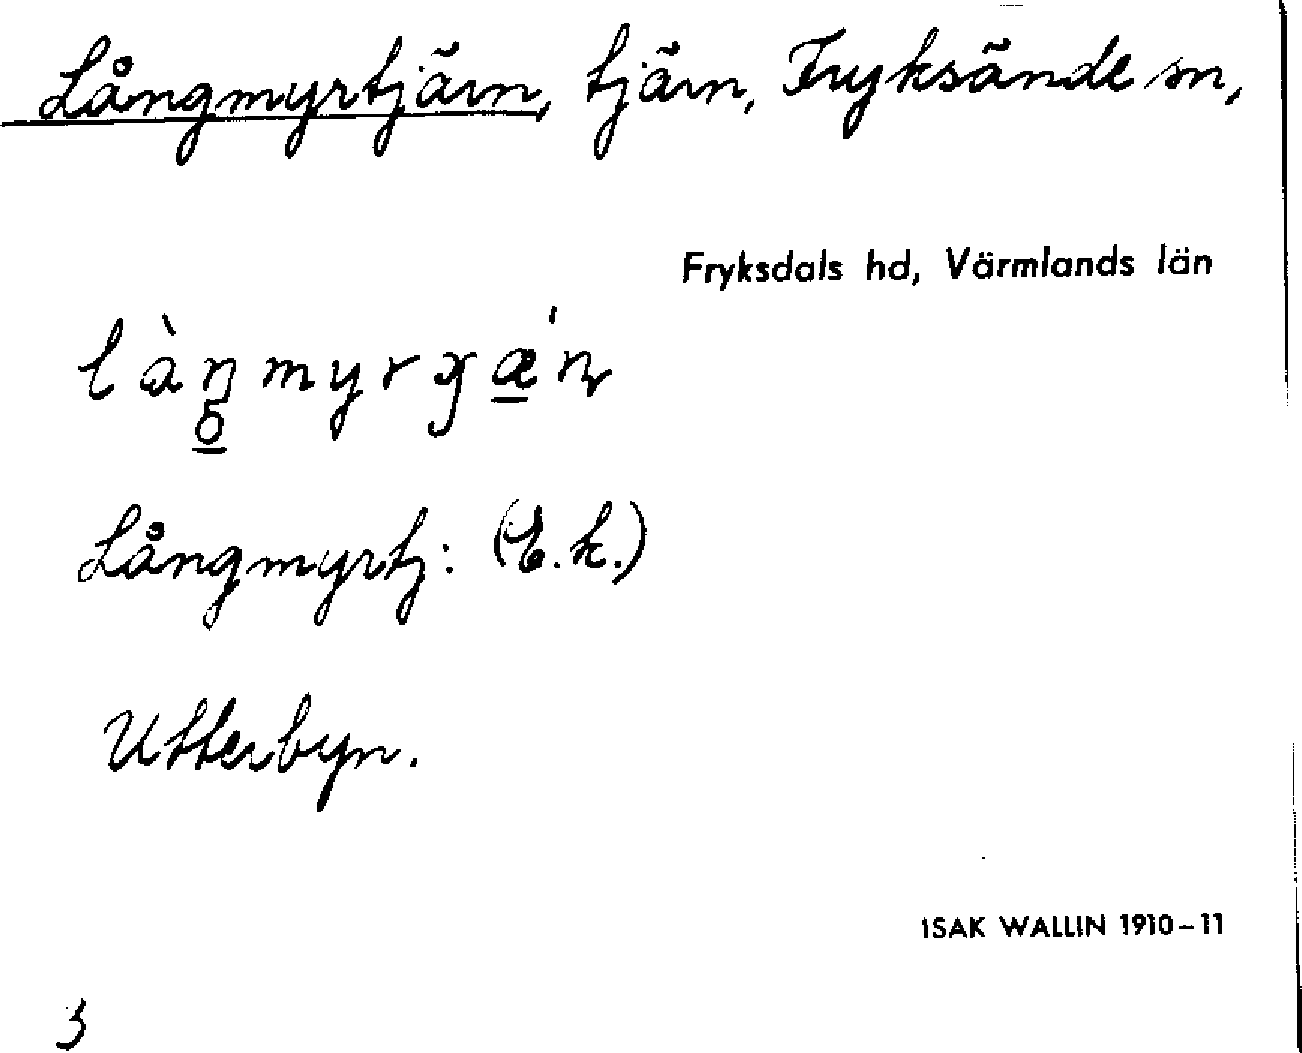 Långmyrtjärn, tjärn, Fryksände sn,
Fryksdals hd, Värmlands län
Långmyrtj: (E.k.)
Utterbyn.
ISAK WALLIN 1910-11
3